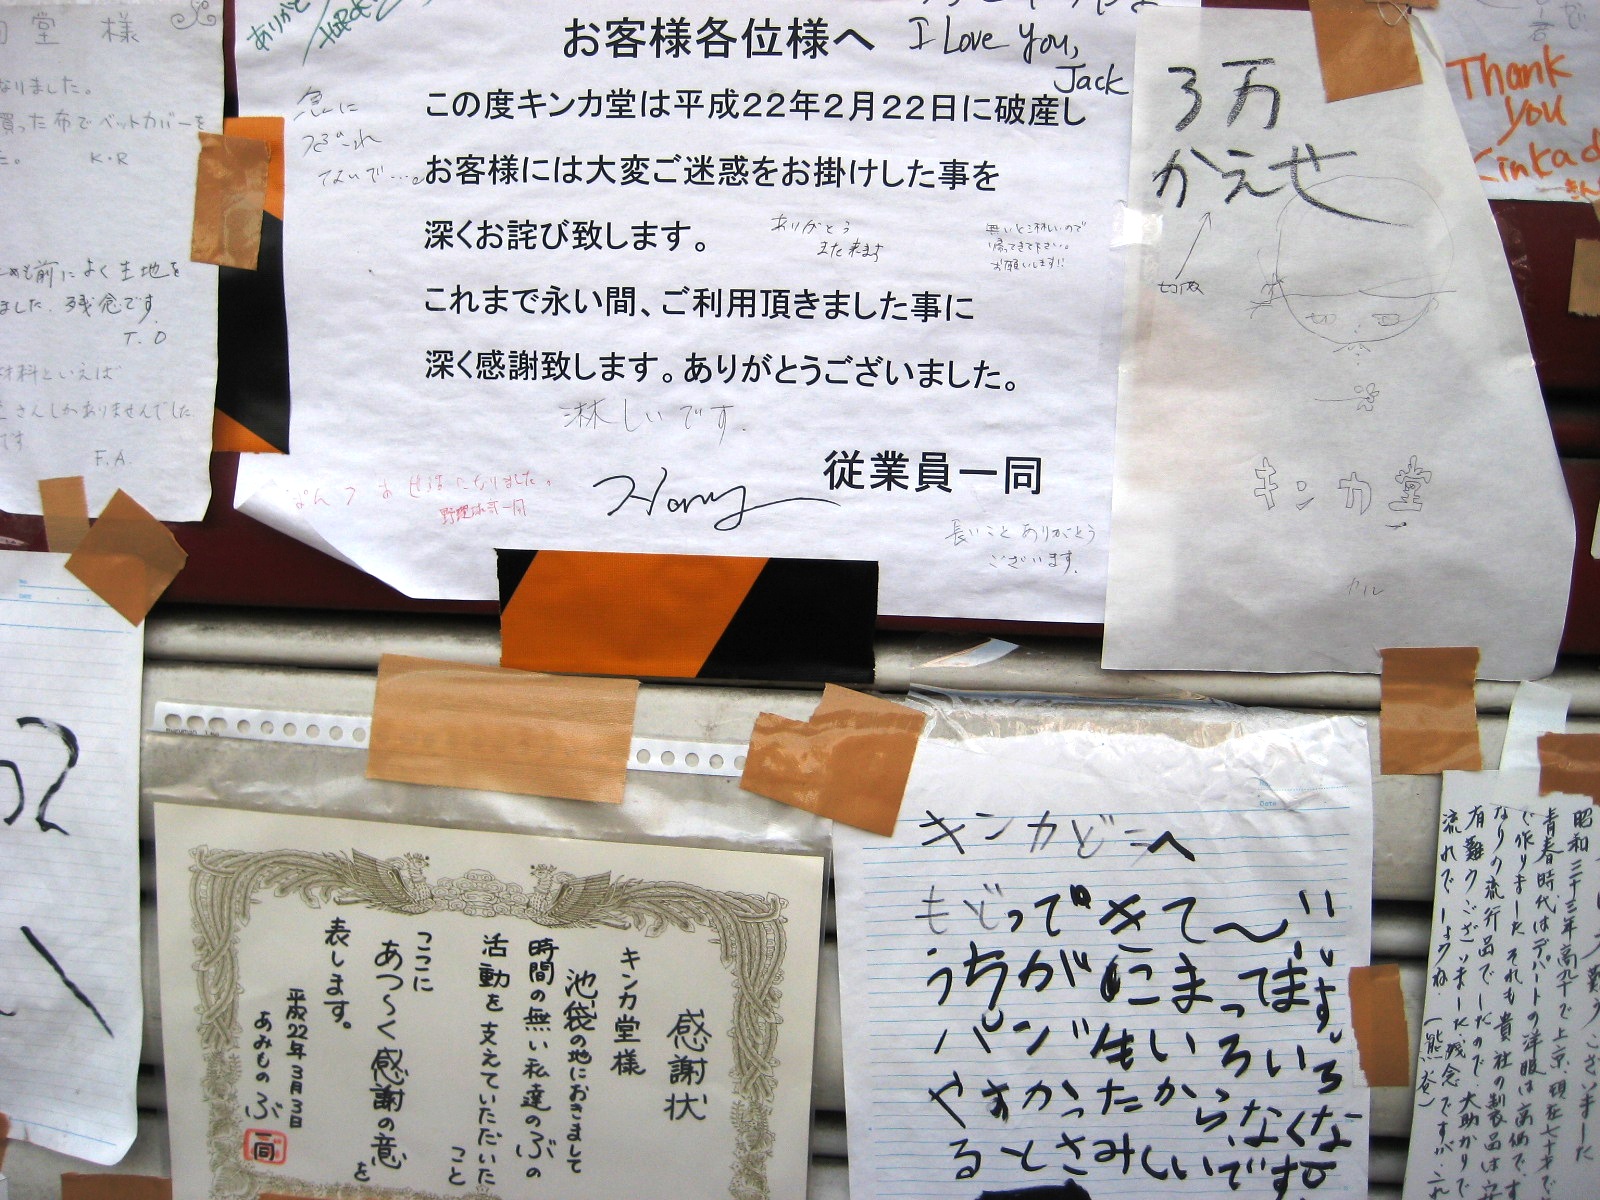 堂 様
なりました。
買った布でベットカバーを
た。 K・R
も前によく生地を
ました。残念です。
T.O
材料といえば
さんしかありませんでした
です
F.A.
ありがと
お客様各位様へ
I Love You,
Jack
この度キンカ堂は平成22年2月22日に破産し
お客様には大変ご迷惑をお掛けした事を
深くお詫び致します。
これまで永い間、ご利用頂きました事に
深く感謝致します。ありがとうございました。
従業員一同
急に
つぶれ
ないで…。
ありがとう
また来ます
無いと淋しいので
帰ってきて下さい。
お願いします!!
淋しいです。
お世話になりました。
長いことありがとう
ございます。
3万
かえせ
キンカ堂
Thank
you
Kinkad
感謝状
キンカ堂様
池袋の地におきまして
時間の無い私達のぶの
活動を支えていただいた
こと
ここに
あつ〜く感謝の意を
表します。
平成22年3月3日
あみものぶ
キンカどうへ
もどってきて〜!!
うちがこまってます。
パンダ生いろいろ
やすかったから、なくな
るとさみしいいです
昭和三十三年高卒で上京、現在七十才で
青春時代はデパートの洋服は高価で、す
で作りました それも貴社の製品は
なりの流行品でしたので、大助かりで
有難うございました、残念ですが、
流れでしょうね。
(熊谷)